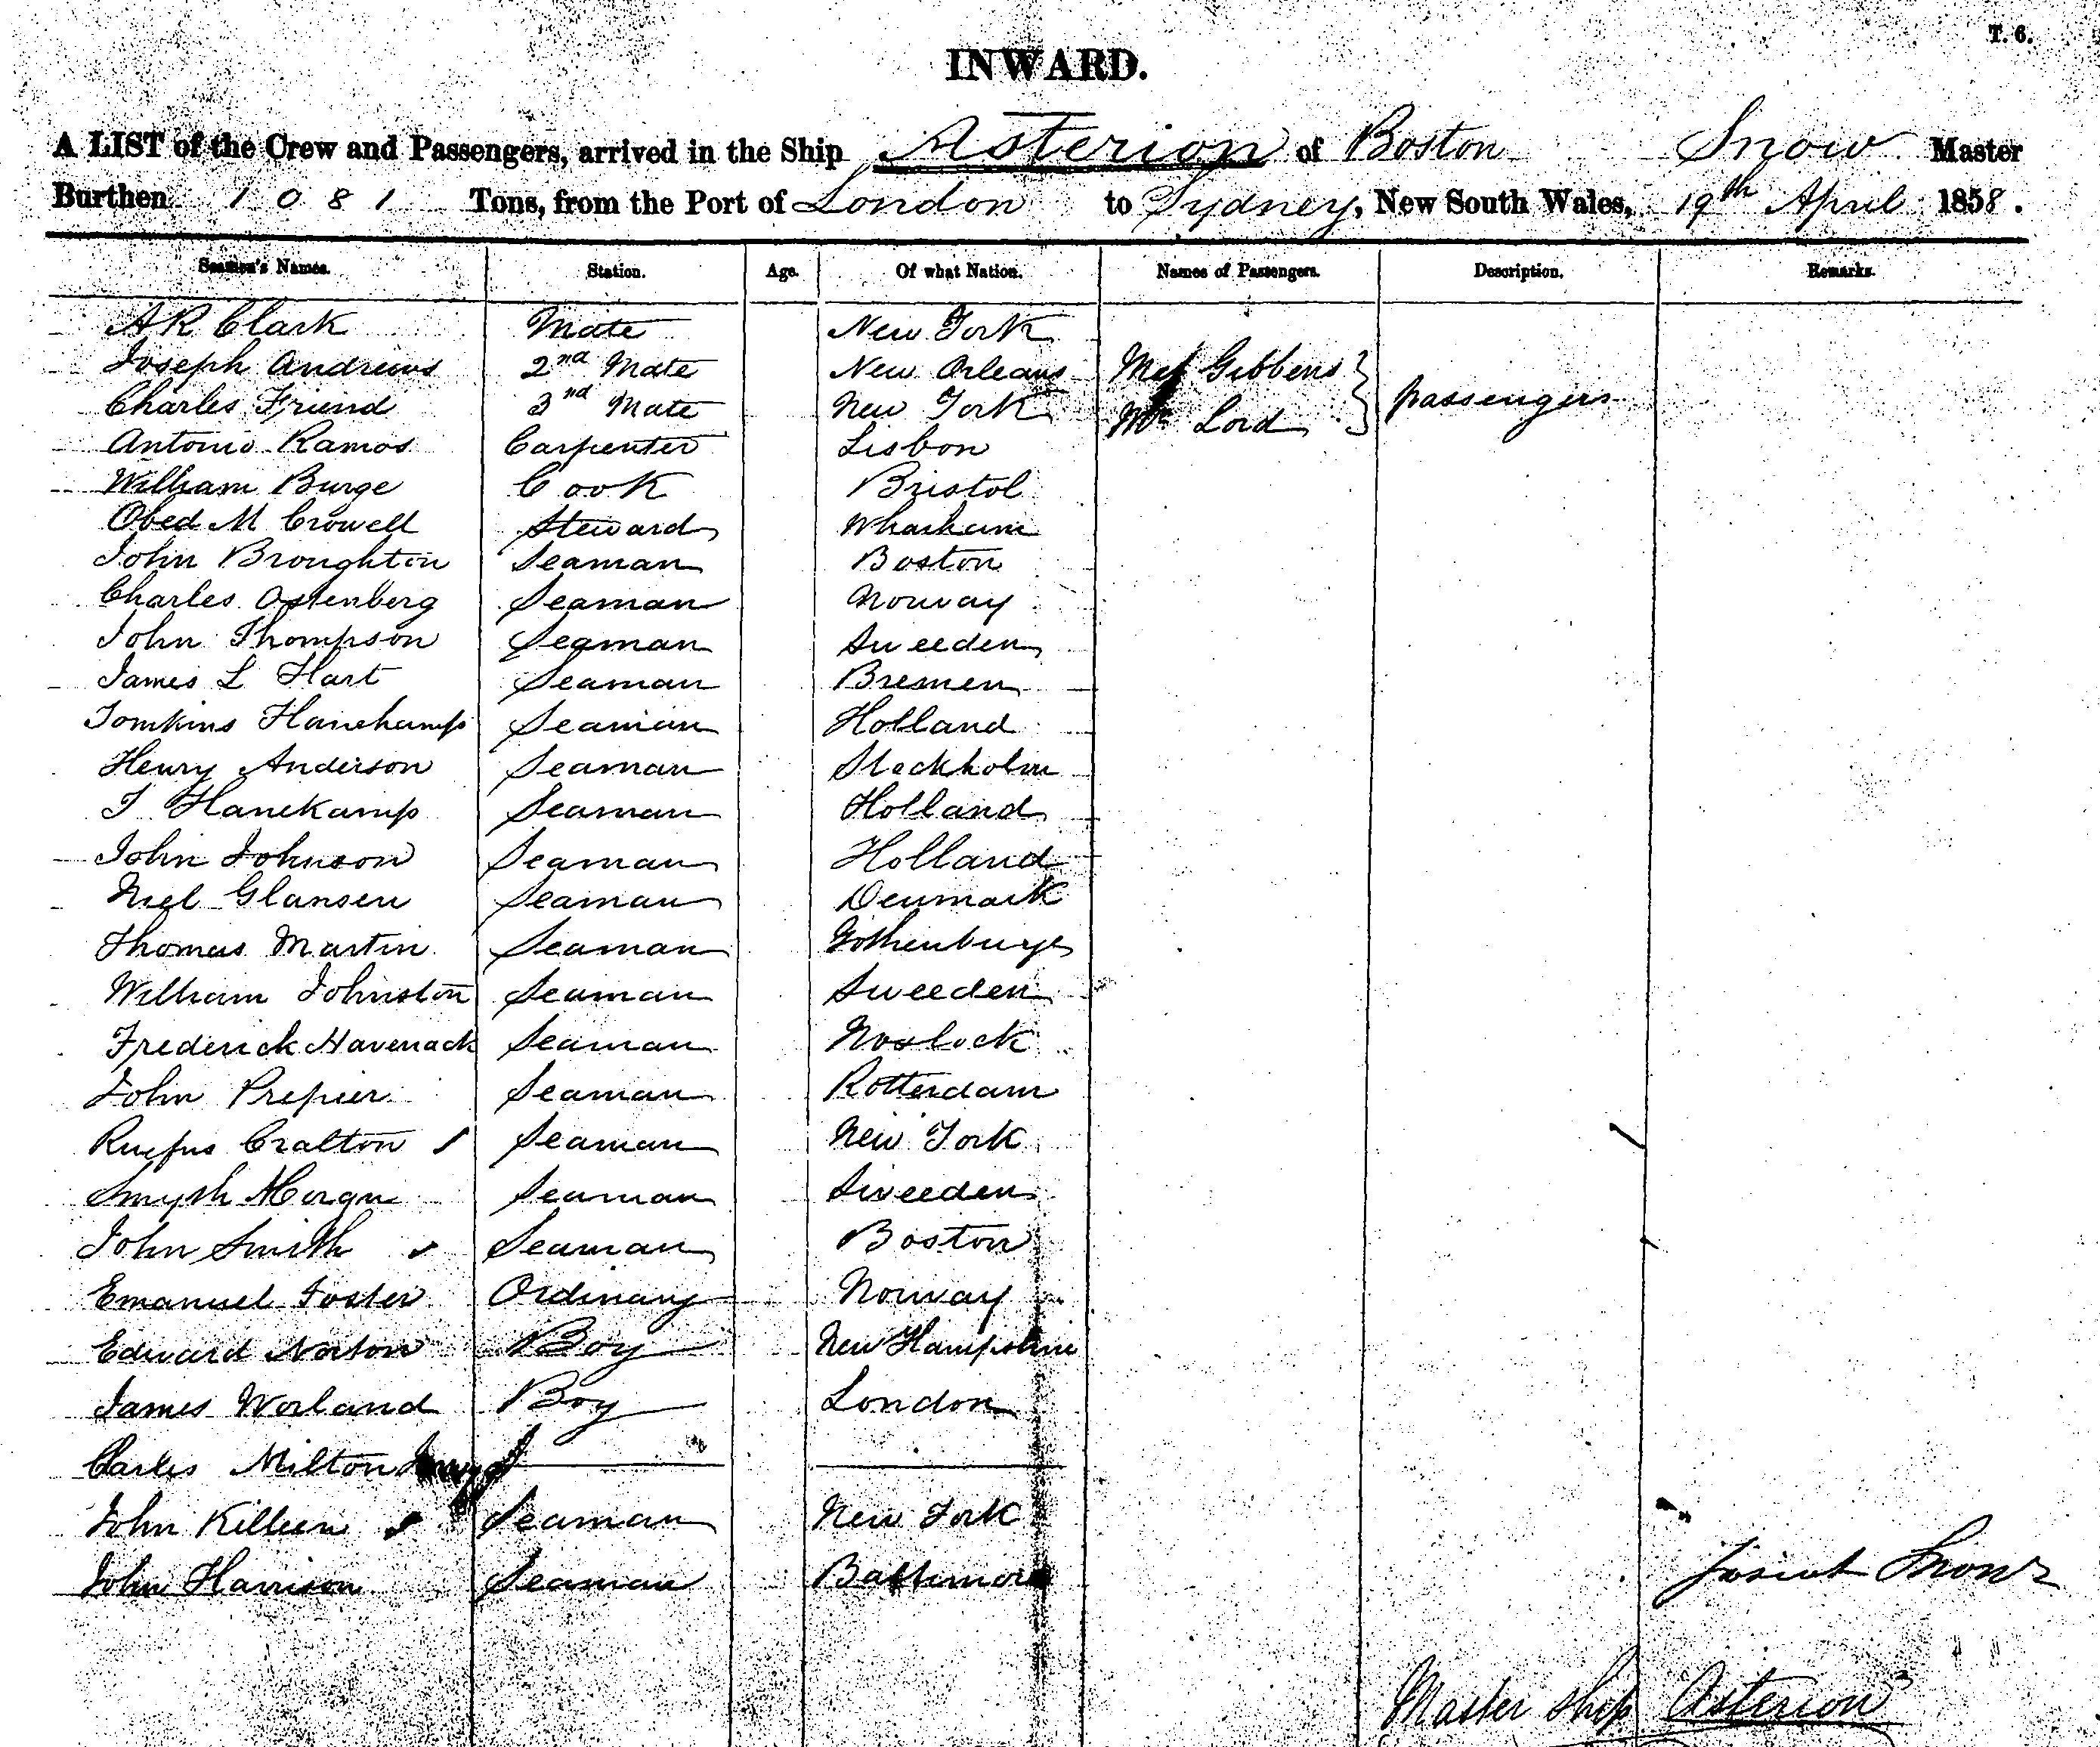 T. 6.
INWARD.
A LIST of the Crew and Passengers, arrived in the Ship Asterion of Boston Snow Master
Burthen 1081 Tons, from the Port of London to Sydney, New South Wales, 19th April 1858.
Seamen's Names. Station. Age. Of what Nation. Names of Passengers. Description. Remarks.
A R Clark Mate New York
Joseph Andrews 2nd Mate New Orleans Gibbens
Charles Friend 3nd Mate New York Mr Lord passengers
Antonio Ramos Carpenter Lisbon
William Burge Cook Bristol
Obed M Crowell Steward Wharham
John Broughton Seaman Boston
Charles Ostenberg Seaman Norway
John Thompson Seaman Sweeden
James L Hart Seaman Bremen
Tomkins Hanekamp Seaman Holland
Henry Anderson Seaman Stockholm
T Hanekamp Seaman Holland
John Johnson Seaman Holland
Niel Glansen Seaman Denmark
Thomas Martin Seaman Gothenburge
William Johnston Seaman Sweeden
Frederick Havenack Seaman
John Prepier Seaman Rotterdam
Rufus Cralton Seaman New York
Smyth Seaman Sweeden
John Smith Seaman Boston
Emanuel Foster Ordinary Norway
Edward Norton Boy New Hampshire
James Worland Boy London
Charles Milton
John Killeen Seaman New York
John Harrison Seaman Baltimore
Josiah Snow
Master Ship Asterion